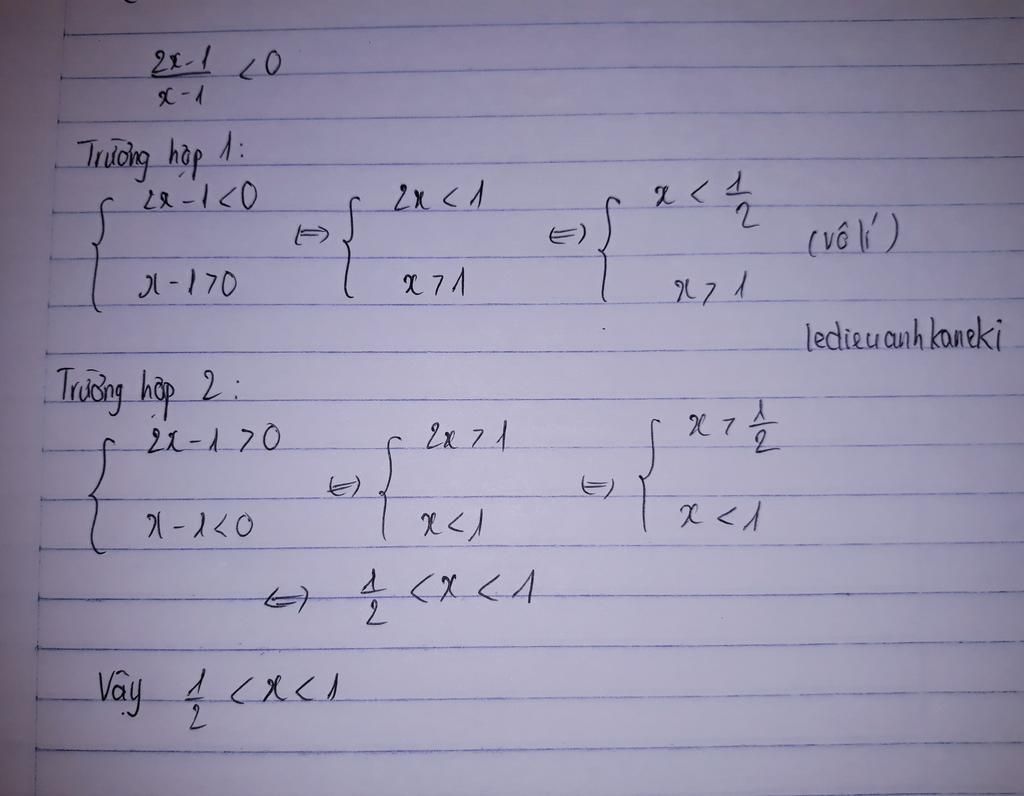 (2x-1)/(x-1) < 0
Trường hợp 1:
{ 2x-1<0 ; x-1>0 ⇔ { 2x<1 ; x>1 ⇔ { x < 1/2 ; x>1 (vô lí)
ledieuanhkaneki
Trường hợp 2:
{ 2x-1>0 ; x-1<0 ⇔ { 2x>1 ; x<1 ⇔ { x > 1/2 ; x<1
⇔ 1/2 < x < 1
Vậy 1/2 < x < 1